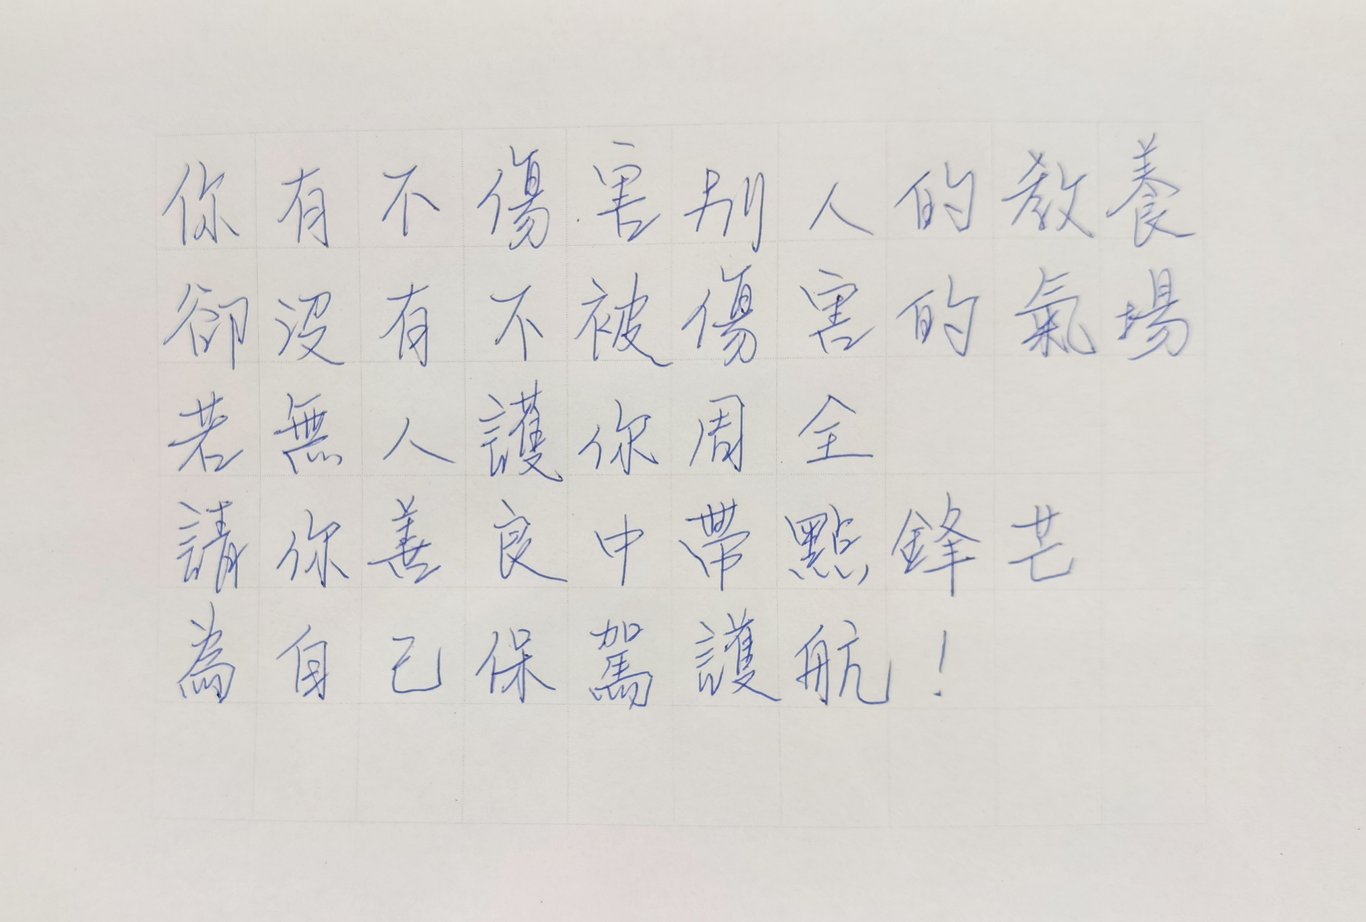 你有不傷害別人的教養
卻沒有不被傷害的氣場
若無人護你周全
請你善良中帶點鋒芒
為自己保駕護航！